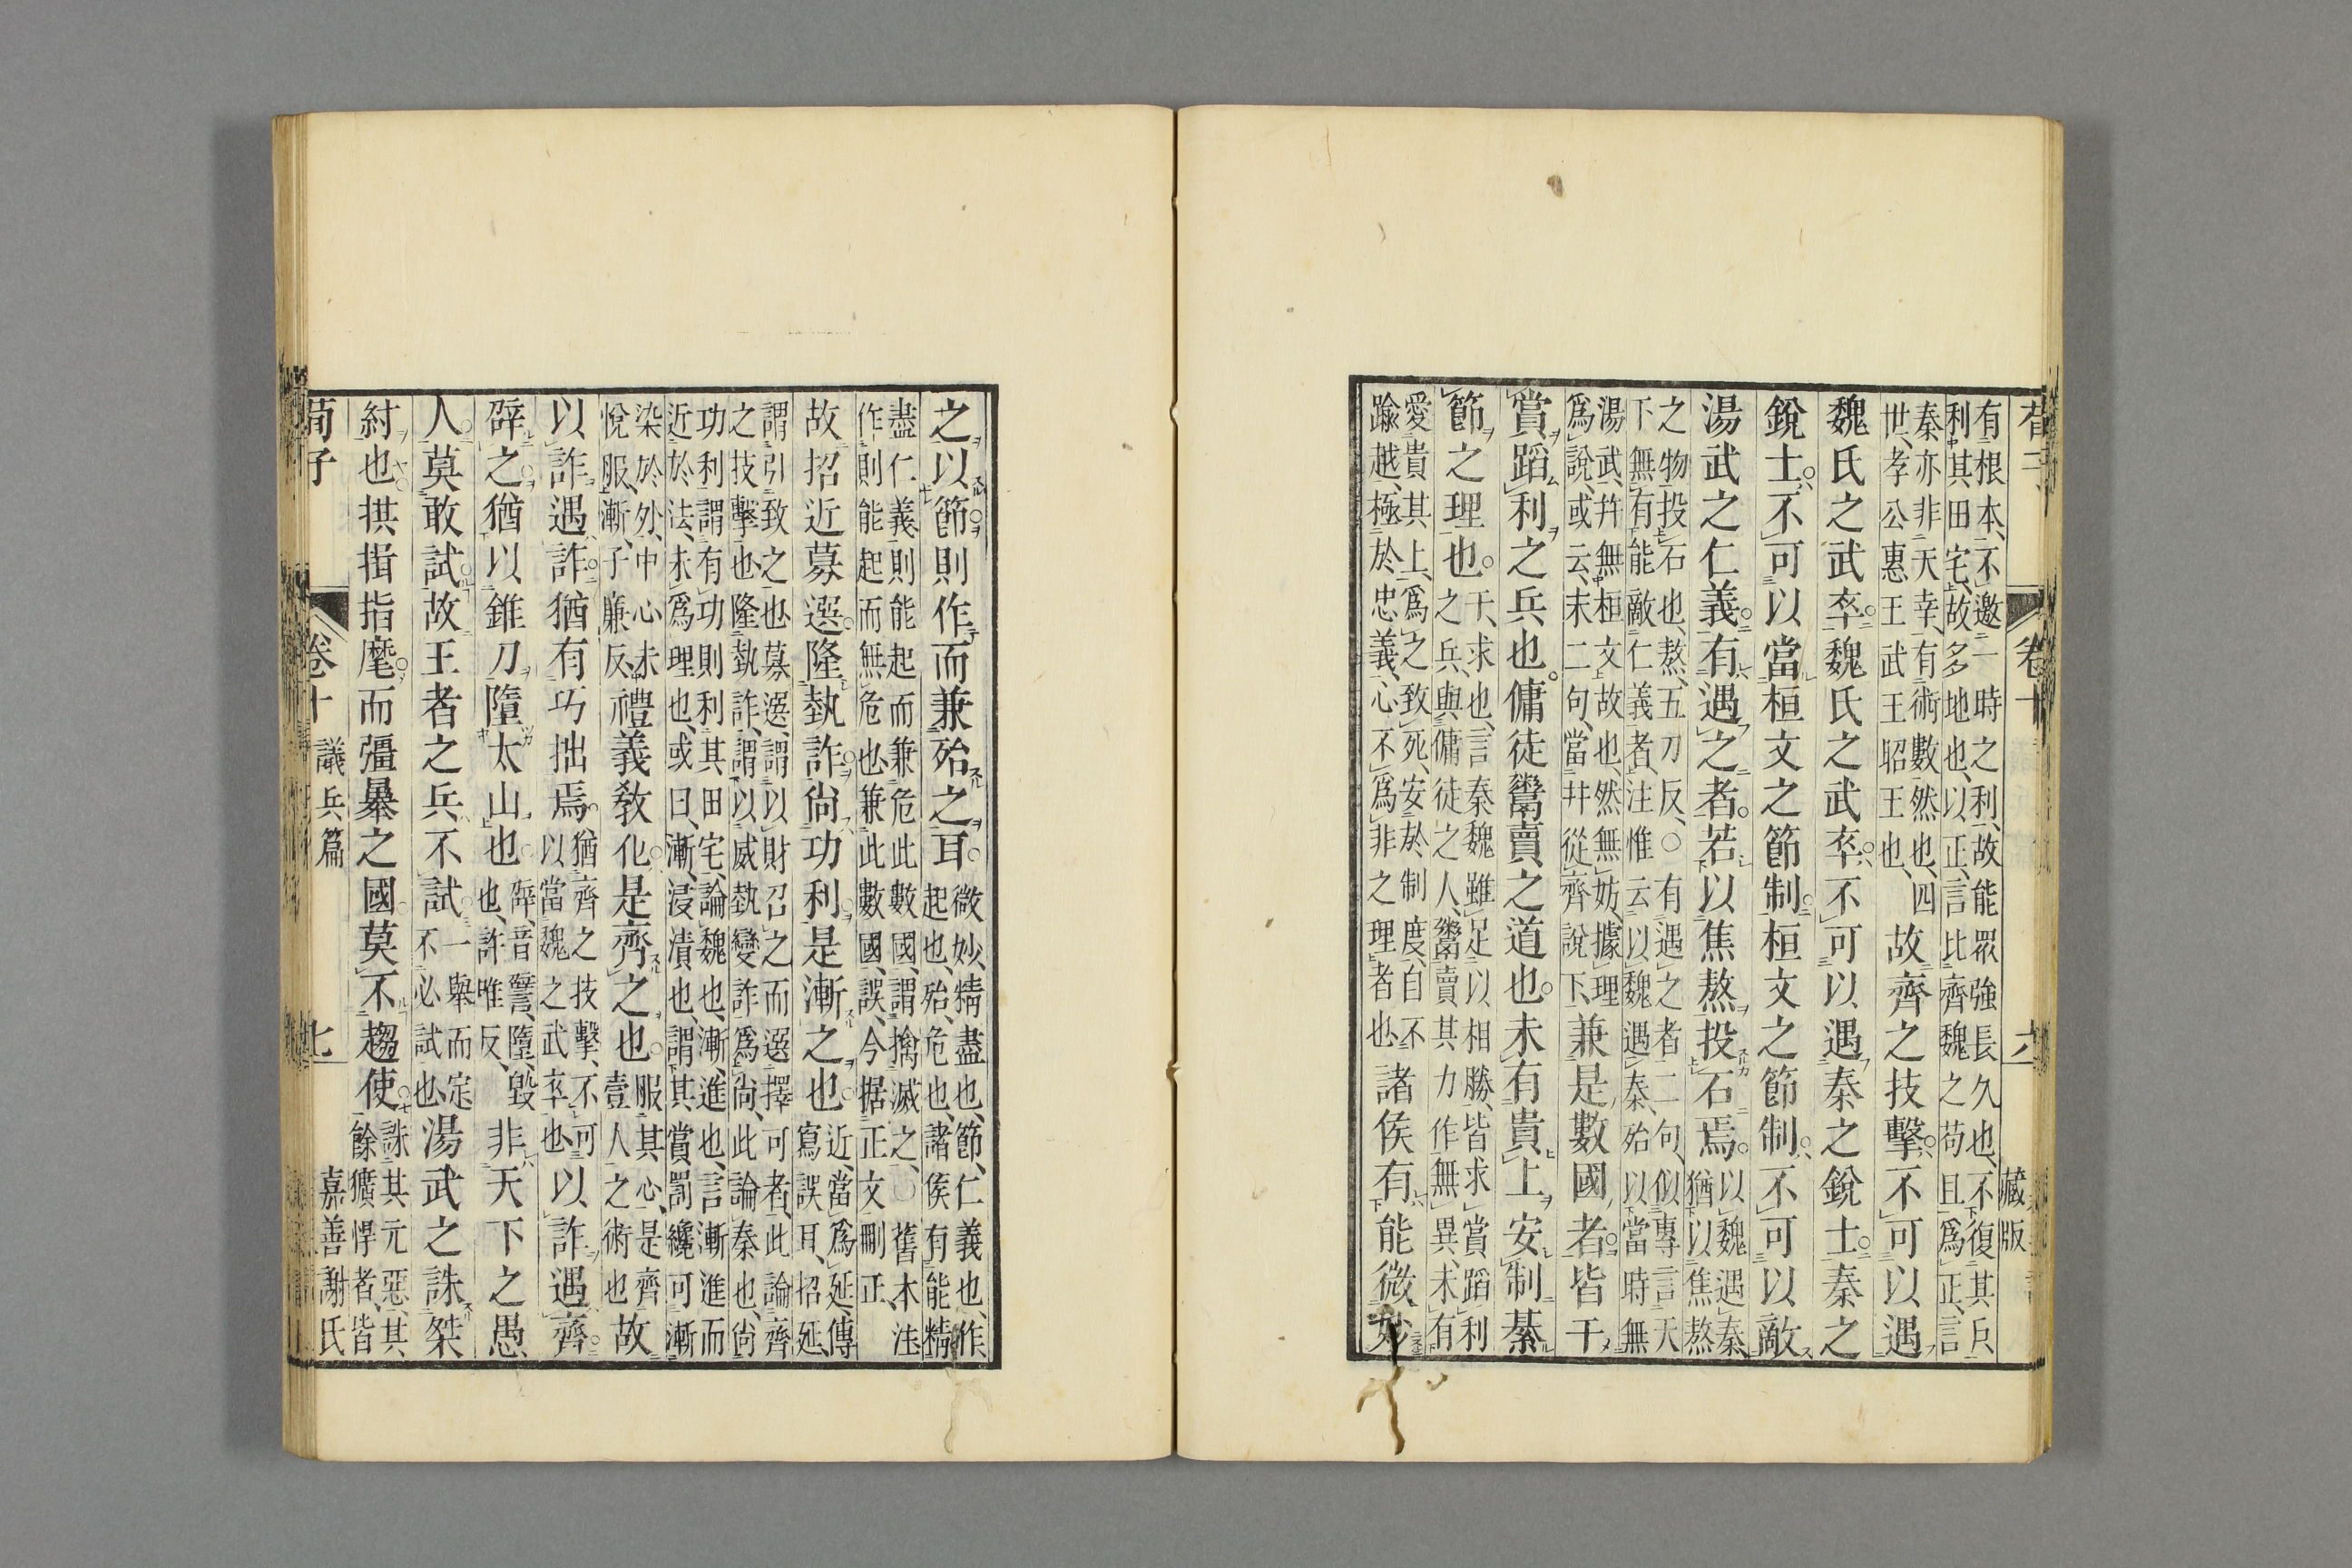 卷十　六　藏版
有根本、不邀一時之利、故能眾強長久也、不復其戶
利其田宅、故多地也、以正、言比齊魏之苟且爲正、言
秦亦非天幸、有術數然也、四
世、孝公惠王武王昭王也、
故齊之技擊。不可以遇
魏氏之武卒。魏氏之武卒。不可以遇秦之銳士。秦之
銳士。不可以當桓文之節制。桓文之節制。不可以敵
湯武之仁義。有遇之者。若以焦熬投石焉。
以魏遇秦
猶以焦熬
之物投石也、熬、五刀反、○有遇之者二句、似專言天
下無有能敵仁義者、注惟云以魏遇秦、殆以當時無
湯武、幷無桓文故也、然無妨、據理
爲說、或云、末二句、當幷從齊說下、
兼是數國者。皆干
賞蹈利之兵也。傭徒鬻賣之道也。未有貴上安制綦
節之理也。
干、求也、言秦魏雖足以相勝、皆求賞蹈利
之兵、與傭徒之人、鬻賣其力作無異、未有
愛貴其上、爲之致死、安於制度、自不
踰越、極於忠義、心不爲非之理者也、
諸侯有能微妙
之以節則作而兼殆之耳。
微妙、精盡也、節、仁義也、作、
起也、殆、危也、諸侯有能精
盡仁義、則能起而兼危此數國、謂擒滅之、○舊本注
作則能起而無危也、兼此數國、誤、今据正文刪正、
故招近募選。隆埶詐。尙功利。是漸之也。
近、當爲延、傳
寫誤耳、招延、
謂引致之也、募選、謂以財召之而選擇可者、此論齊
之技擊也、隆埶詐、謂以威埶變詐爲尙、此論秦也、尙
功利、謂有功則利其田宅、論魏也、漸、進也、言漸進而
近於法、未爲理也、或曰、漸、浸漬也、謂其賞罰纔可漸
染於外、中心未
悅服、漸、子廉反、
禮義敎化。是齊之也。
服其心、是齊
壹人之術也
故
以詐遇詐。猶有巧拙焉。
猶齊之技擊、不可
以當魏之武卒也
以詐遇齊。
辟之猶以錐刀墮太山也。
辟、音譬、墮、毀
也、許唯反、
非天下之愚
人。莫敢試。故王者之兵不試。
一舉而定
不必試也
湯武之誅桀
紂也。拱揖指麾。而彊暴之國。莫不趨使。
誅其元惡、其
餘獷悍者、皆
荀子　卷十　議兵篇　七　嘉善謝氏